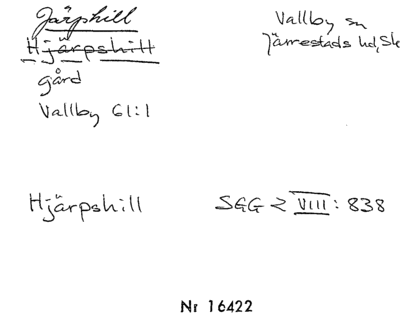 Järphill
Hjärpshill
gård
Vallby 61:1
Vallby sn
Järrestads hd, Sk
Hjärpshill
SGG 2 VIII: 838
Nr 16422